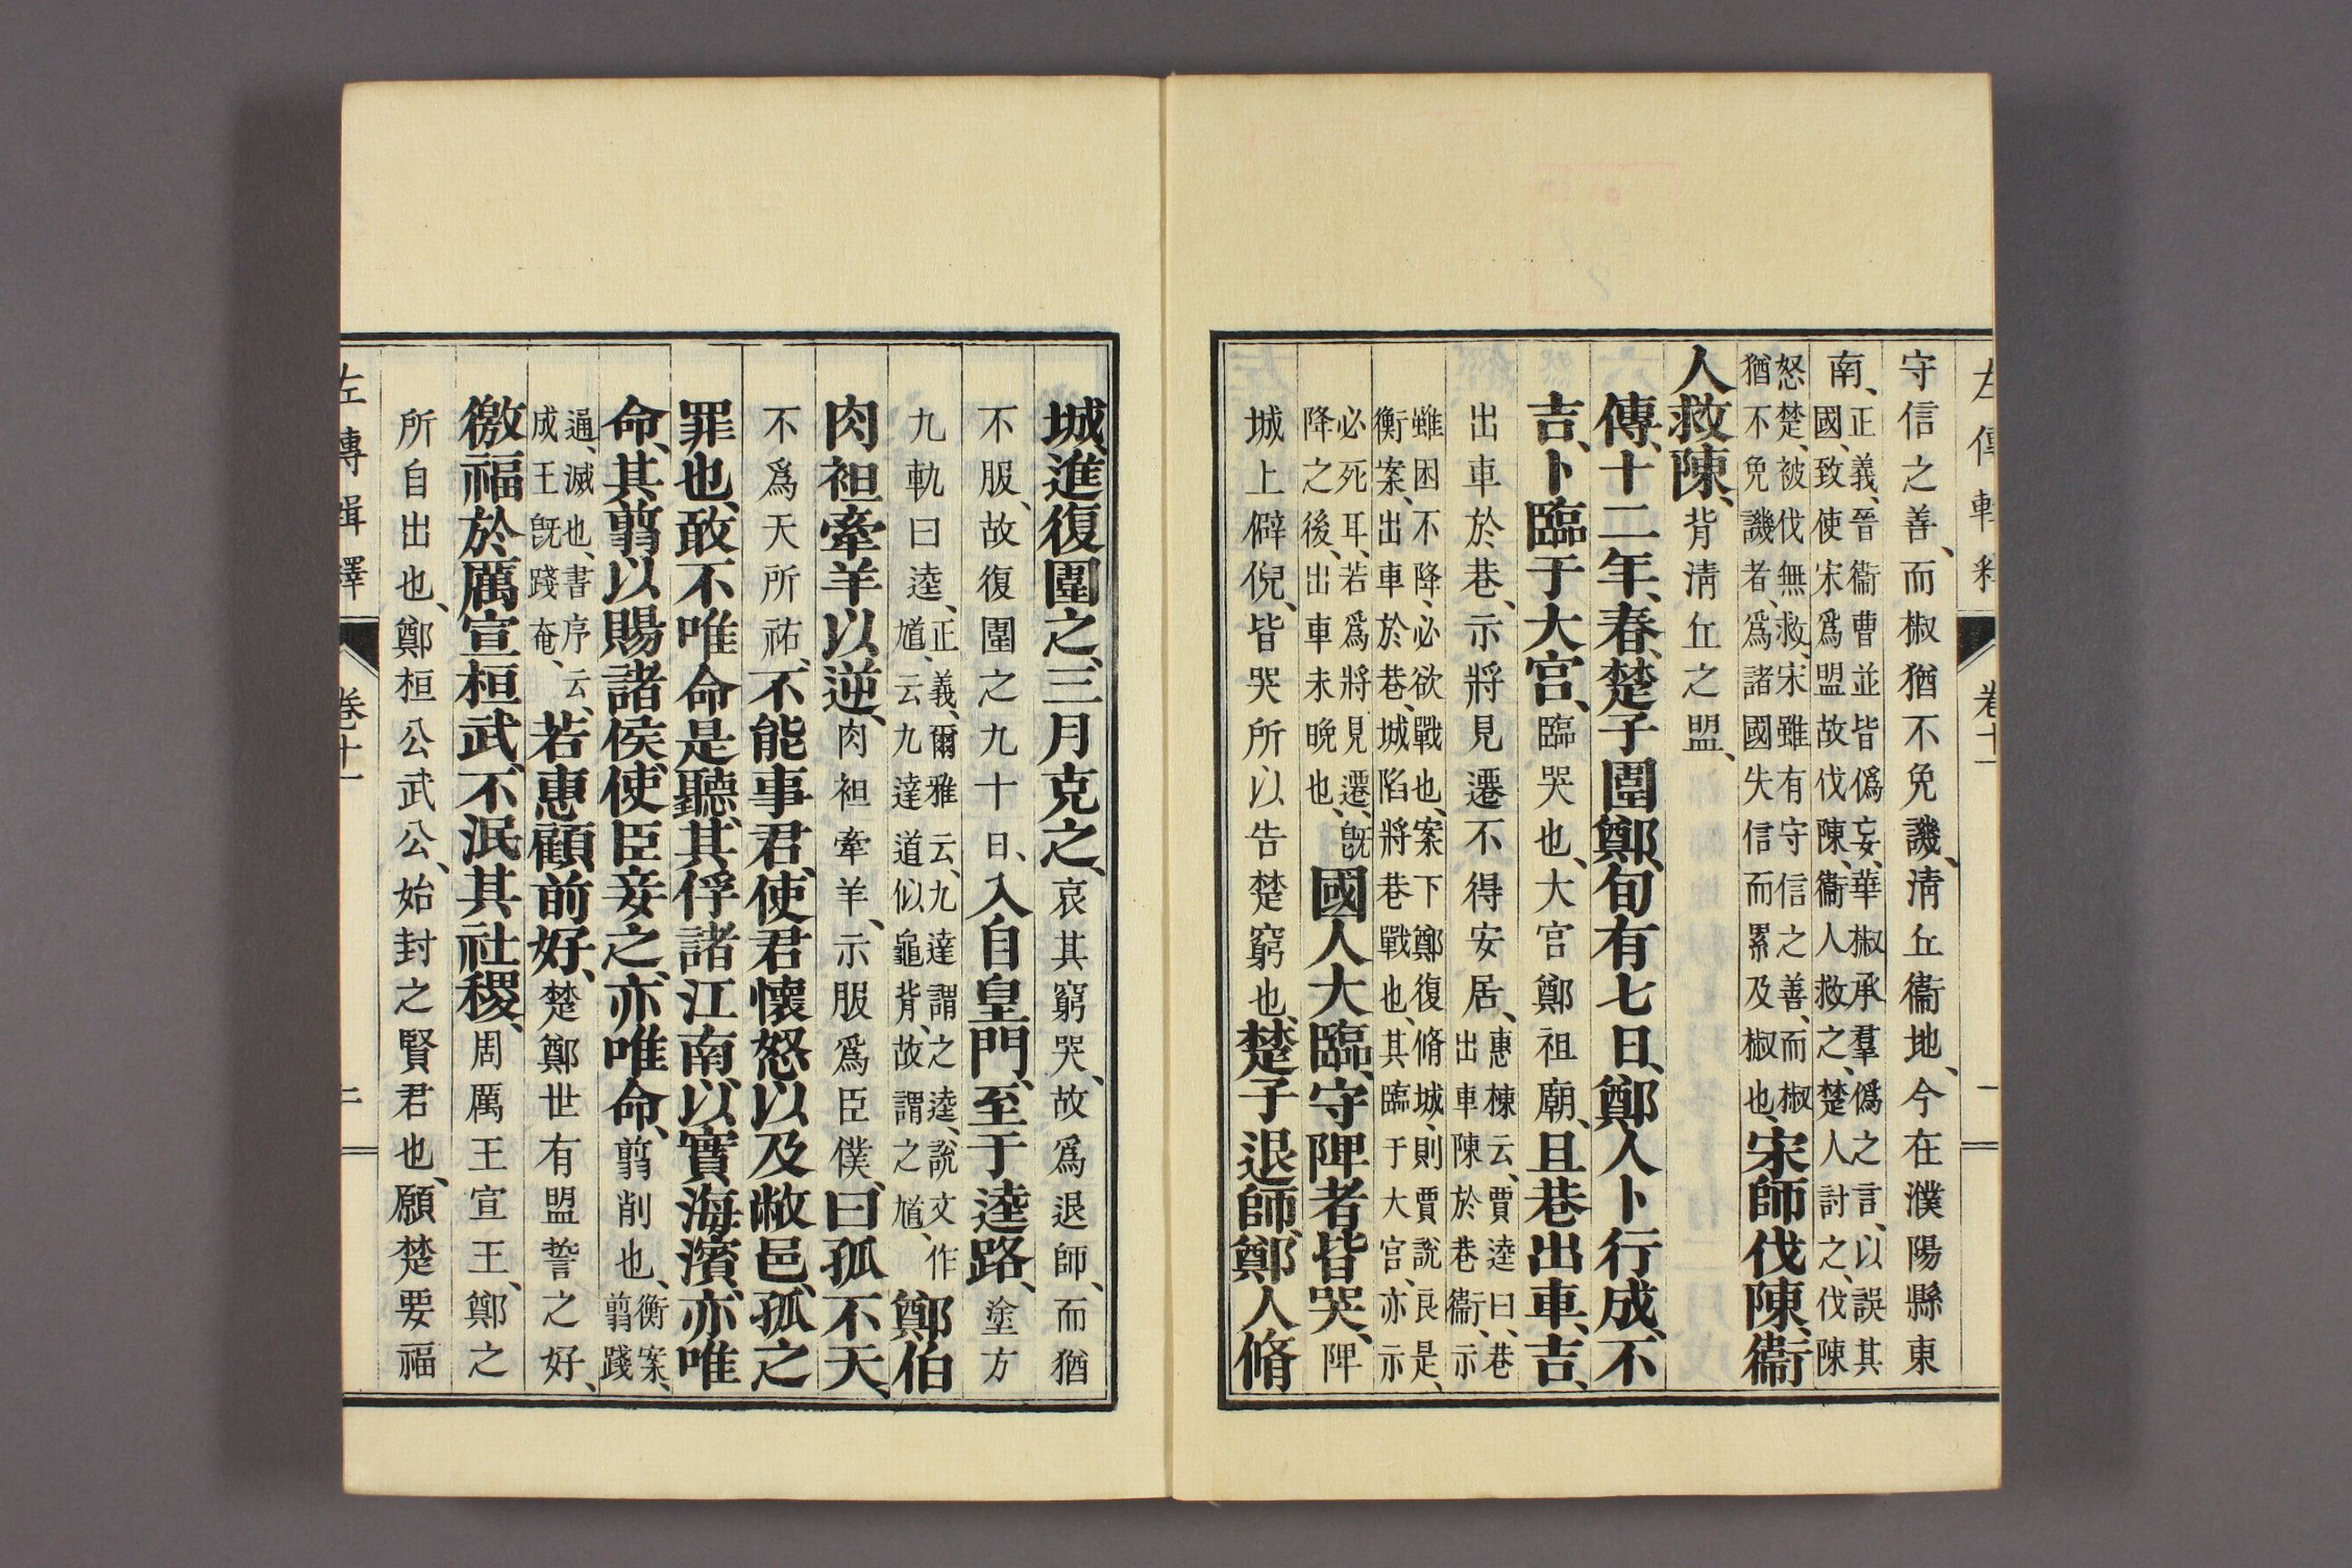 守信之善、而椒猶不免譏、淸丘衞地、今在濮陽縣東
南、正義、晉衞曹並皆僞妄、華椒承羣僞之言、以誤其
國、致使宋爲盟故伐陳、衞人救之、楚人討之、伐陳
怒楚、被伐無救、宋雖有守信之善、而椒
猶不免譏者、爲諸國失信而累及椒也、宋師伐陳、衞
人救陳、背淸丘之盟、
傳、十二年、春、楚子圍鄭、旬有七日、鄭人卜行成、不
吉、卜臨于大宮、臨哭也、大宮鄭祖廟、且巷出車、吉、
出車於巷、示將見遷不得安居、惠棟云、賈逵曰、巷
出車陳於巷衞、示
雖困不降、必欲戰也、案下鄭復脩城、則賈說良是、
衡案、出車於巷、城陷將巷戰也、其臨于大宮、亦示
必死耳、若爲將見遷、旣
降之後、出車未晚也、國人大臨、守陴者皆哭、陴
城上僻倪、皆哭所以告楚窮也、楚子退師、鄭人脩
左傳輯釋 卷十一 二
城、進復圍之、三月克之、哀其窮哭、故爲退師、而猶
不服、故復圍之九十日、入自皇門、至于逵路、塗方
九軌曰逵、正義、爾雅云、九達謂之逵、說文作
馗、云九達道似龜背、故謂之馗、鄭伯
肉袒牽羊以逆、肉袒牽羊、示服爲臣僕、曰孤不天、
不爲天所祐、不能事君、使君懷怒以及敝邑、孤之
罪也、敢不唯命是聽、其俘諸江南、以實海濱、亦唯
命、其翦以賜諸侯、使臣妾之、亦唯命、翦削也、衡案、
翦踐
通、滅也、書序云、
成王旣踐奄、若惠顧前好、楚鄭世有盟誓之好、
徼福於厲宣桓武、不泯其社稷、周厲王宣王、鄭之
所自出也、鄭桓公武公、始封之賢君也、願楚要福
左傳輯釋 卷十一 二